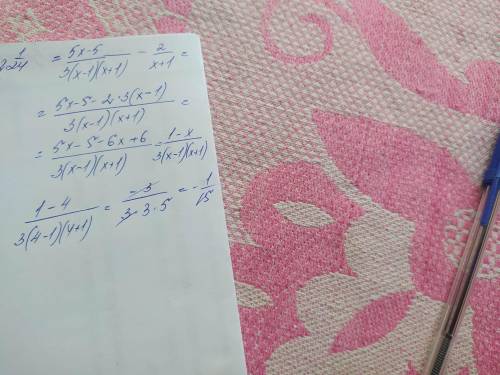 1/24 = (5x-5)/(3(x-1)(x+1)) - 2/(x+1) =
= (5x-5-2·3(x-1))/(3(x-1)(x+1)) =
= (5x-5-6x+6)/(3(x-1)(x+1)) = (1-x)/(3(x-1)(x+1))
(1-4)/(3(4-1)(4+1)) = -3/(3·3·5) = -1/15